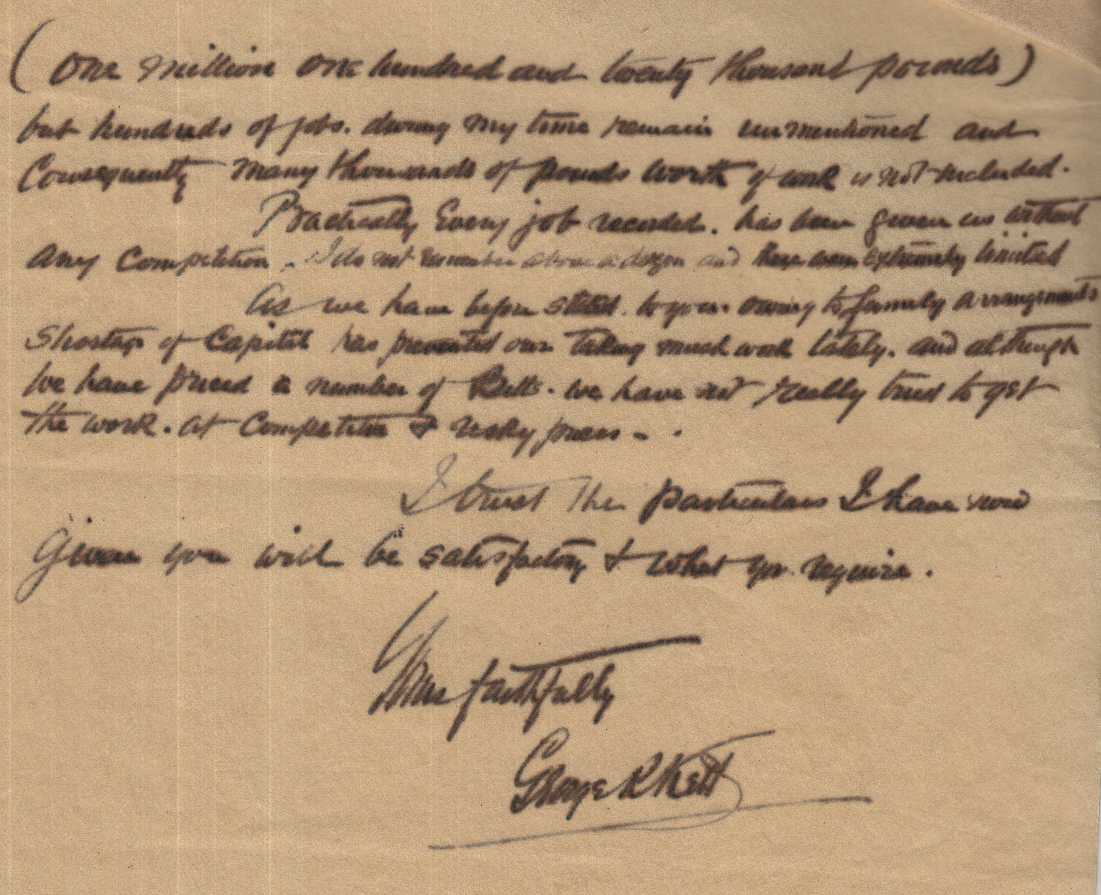 (One million one hundred and twenty thousand pounds)
but hundreds of jobs. during my time remain unmentioned and
Consequently many thousands of pounds worth of work is not included.
Practically Every job recorded. has been given us without
any Competition. I do not remember above a dozen and these were extremely limited
As we have before stated. to you. owing to family arrangements
Shortage of Capital has prevented our taking much work lately. and although
we have priced a number of Bills. we have not really tried to get
the work. at Competitive & risky prices - .
I trust the particulars I have now
Given you will be satisfactory & what you require.
Yours faithfully
George R Kett